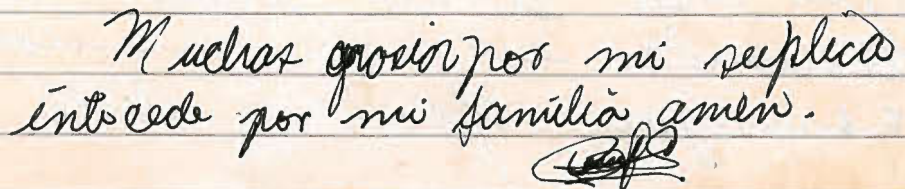 Muchas grosior por mi suplica
intocede por mi familia amen.